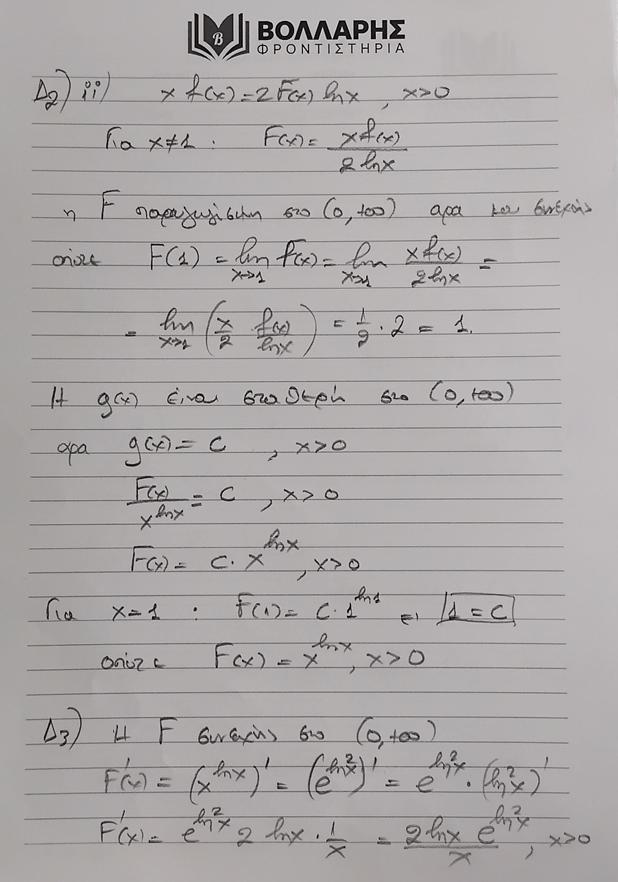 ΒΟΛΛΑΡΗΣ
ΦΡΟΝΤΙΣΤΗΡΙΑ
Δ2) ii) x f(x) = 2F(x) lnx , x>0
Για x≠1 : F(x) = xf(x) / 2lnx
η F παραγωγίσιμη στο (0,+∞) αρα και συνεχής
οπότε F(1) = lim x→1 F(x) = lim x→1 xf(x) / 2lnx =
= lim x→1 (x/2 f(x)/lnx) = 1/2 · 2 = 1.
Η g(x) είναι σταθερή στο (0,+∞)
αρα g(x) = c , x>0
F(x) / x^lnx = c , x>0
F(x) = c · x^lnx , x>0
Για x=1 : F(1) = c · 1^ln1 ⇒ 1 = c
οπότε F(x) = x^lnx , x>0
Δ3) Η F συνεχής στο (0,+∞)
F'(x) = (x^lnx)' = (e^ln²x)' = e^ln²x · (ln²x)'
F'(x) = e^ln²x 2 lnx · 1/x = 2lnx e^ln²x / x , x>0